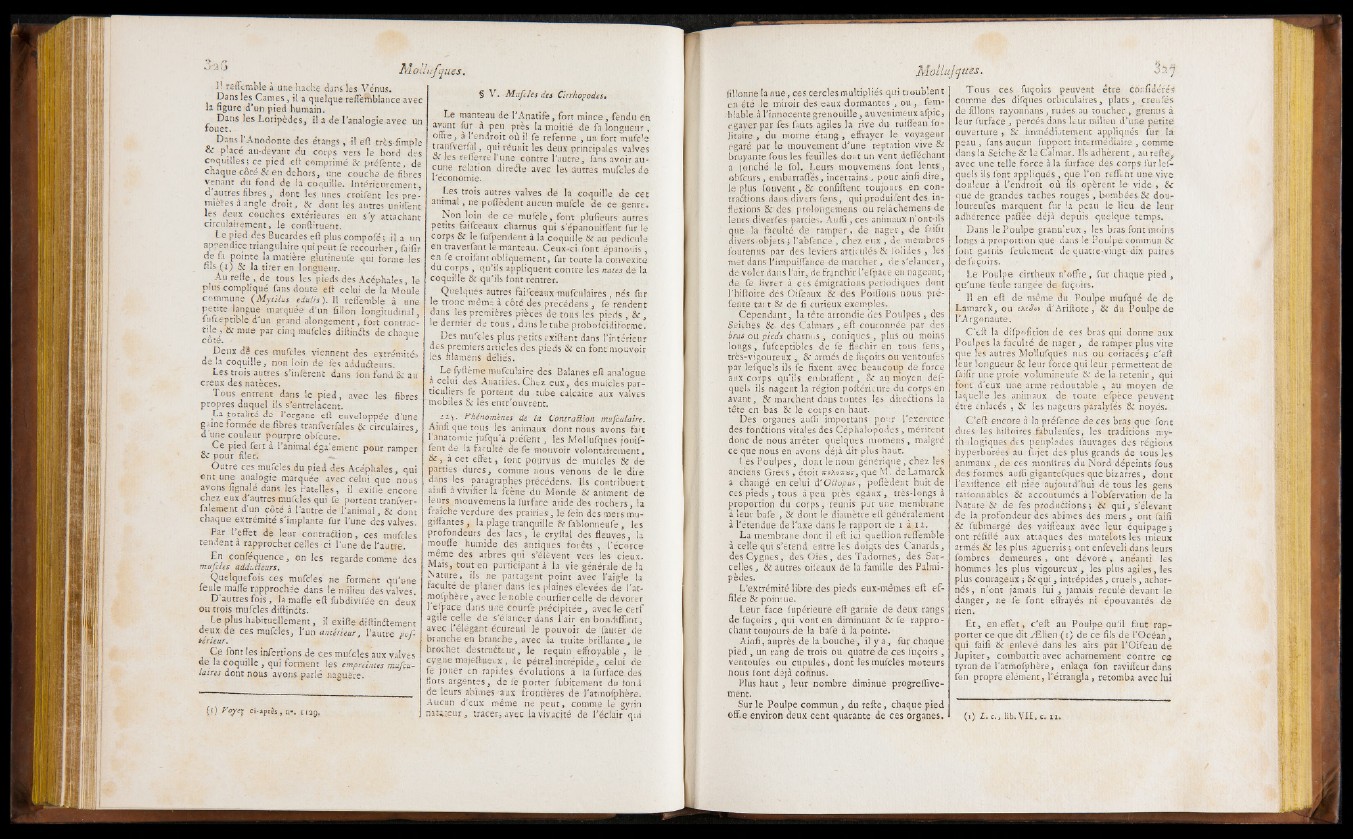 326
Mollusques.
Il ressemble à une hache dans les Vénus.
Dans les Cames, il a quelque ressemblance avec
la figure d'un pied humain.
Dans les Loripèdes, il a de l'analogie avec un
fouet.
Dans l'Anodonte des étangs, il est très-simple
& placé au-devant du corps vers le bord des
coquilles; ce pied est comprimé & présente, de
chaque côté & en dehors, une couche de fibres
venant du fond de la coquille. Intérieurement,
d'autres fibres, dont les unes croisent les pre-
mières à angle droit, & dont les autres unissent
les deux couches extérieures en s'y attachant
circulairement, le constituent.
Le pied des Bucardes est plus composé; il a un
appendice triangulaire qui peut se recourber, saisir
de sa pointe la matière glutineuse qui forme les
fils (1) & la tirer en longueur.
Au reste, de tous les pieds des Acéphales, le
plus compliqué sans doute est celui de la Moule
commune (Mytilus edulis). Il ressemble à une
petite langue marquée d'un sillon longitudinal,
susceptible d'un grand alongement, fort contrac-
tile, & mue par cinq muscles distincts de chaque
côté.
Deux de ces muscles viennent des extrémités
de la coquille, non loin de ses adducteurs.
Les trois autres s'insèrent dans son fond & au
creux des natèces.
Tous entrent dans le pied, avec les fibres
propres duquel ils s'entrelacent.
La totalité de l'organe est enveloppée d'une
gaîne formée de fibres transversales & circulaires,
d'une couleur pourpre obscure.
Ce pied sert à l'animal également pour ramper
& pour filer.
Outre ces muscles du pied des Acéphales, qui
ont une analogie marquée avec celui que nous
avons signalé dans les Patelles, il existe encore
chez eux d'autres muscles qui se portent transver-
salement d'un côté à l'autre de l'animal, & dont
chaque extrémité s'implante sur l'une des valves.
Par l'effet de leur contraction, ces muscles
tendent à rapprocher celles-ci l'une de l'autre.
En conséquence, on les regarde comme des
muscles adducteurs.
Quelquefois ces muscles ne forment qu'une
seule masse rapprochée dans le milieu des valves.
D'autres fois, la masse est subdivisée en deux
ou trois muscles distincts.
Le plus habituellement, il existe distinctement
deux de ces muscles, l'un antérieur, l'autre pos-
térieur.
Ce sont les insertions de ces muscles aux valves
de la coquille, qui forment les empreintes muscu-
laires dont nous avons parlé naguère.
(1) Voyez ci-après, n°. 1129.
§ V. Muscles des Cirrhopodes.
Le manteau de l'Anatife, fort mince, fendu en
avant sur à peu près la moitié de sa longueur,
offre, à l'endroit où il se referme, un fort muscle
transversal, qui réunit les deux principales valves
& les resserre l'une contre l'autre, sans avoir au-
cune relation directe avec les autres muscles de
l'économie.
Les trois autres valves de la coquille de cet
animal, ne possèdent aucun muscle de ce genre.
Non loin de ce muscle, sont plusieurs autres
petits faisceaux charnus qui s'épanouissent sur le
corps & le suspendent à la coquille & au pédicule
en traversant le manteau. Ceux-ci sont épanouis,
en se croisant obliquement, sur toute la convexité
du corps, qu'ils appliquent contre les nates de la
coquille & qu'ils font rentrer.
Quelques autres faisceaux musculaires, nés sur
le tronc même à côté des précédens, se rendent
dans les premières pièces de tous les pieds, &,
le dernier de tous, dans le tube proboscidiforme.
Des muscles plus petits existent dans l'intérieur
des premiers articles des pieds & en font mouvoir
les filamens déliés.
Le système musculaire des Balanes est analogue
à celui des Anatifes. Chez eux, des muscles par-
ticuliers se portent du tube calcaire aux valves
mobiles & les entr'ouvrent.
Phénomènes de la Contraction musculaire.
Ainsi que tous les animaux dont nous avons fait
l'anatomie jusqu'à présent, les Mollusques jouis-
sent de la faculté de se mouvoir volontairement,
&, à cet effet, sont pourvus de muscles & de
parties dures, comme nous venons de le dire
dans les paragraphes précédens. Ils contribuent
ainsi à vivifier la scène du Monde & animent de
leurs mouvemens la surface aride des rochers, la
fraîche verdure des prairies, le sein des mers mu-
gissantes, la plage tranquille & sablonneuse, les
profondeurs des lacs, le crystal des fleuves, la
mousse humide des antiques forêts, l'écorce
même des arbres qui s'élèvent vers les cieux.
Mais, tout en participant à la vie générale de la
Nature, ils ne partagent point avec l'aigle la
faculté de planer dans les plaines élevées de l'at-
mosphère, avec le noble coursier celle de dévorer
l'espace dans une course précipitée, avec le cerf
agile celle de s'élancer dans l'air en bondissant,
avec l'élégant écureuil le pouvoir de sauter de
branche en branche, avec la truite brillante, le
brochet destructeur, le requin effroyable, le
cygne majestueux, le pétrel intrépide, celui de
se jouer en rapides évolutions à la surface des
flots argentés, de se porter subitement du fond
de leurs abîmes aux frontières de l'atmosphère.
Aucun d'eux même ne peut, comme le gyrin
nageur, tracer, avec la vivacité de l'éclair qui
Mollusques.
327
sillonne la nue, ces cercles multipliés qui troublent
en été le miroir des eaux dormantes, ou, sem-
blable à l'innocente grenouille, au venimeux aspic,
égayer par ses sauts agiles la rive du ruisseau so-
litaire, du morne étang, effrayer le voyageur
égaré par le mouvement d'une reptation vive &
bruyante sous les feuilles dont un vent desséchant
a jonché le sol. Leurs mouvemens sont lents,
obscurs, embarrassés, incertains, pour ainsi dire,
le plus souvent, & consistent toujours en con-
tractions dans divers sens, qui produisent des in-
flexions & des prolongemens ou relâchemens de
leurs diverses parties. Aussi, ces animaux n'ont-ils
que la faculté de ramper, de nager, de saisir
divers objets; l'absence, chez eux, de membres
soutenus par des leviers articulés & solides, les
met dans l'impuissance de marcher, de s'élancer,
de voler dans l'air, de franchir l'espace en nageant,
de se livrer à ces émigrations périodiques dont
l'histoire des Oiseaux & des Poissons nous pré-
sente tant & de si curieux exemples.
Cependant, la tête arrondie des Poulpes, des
Seiches & des Calmars, est couronnée par des
bras ou pieds charnus, coniques, plus ou moins
longs, susceptibles de se fléchir en tous sens,
très-vigoureux, & armés de suçoirs ou ventouses
par lesquels ils se fixent avec beaucoup de force
aux corps qu'ils embrassent, & au moyen des-
quels ils nagent la région postérieure du corps en
avant, & marchent dans toutes les directions la
tête en bas & le corps en haut.
Des organes aussi importans pour l'exercice
des fonctions vitales des Céphalopodes, méritent
donc de nous arrêter quelques momens, malgré
ce que nous en avons déjà dit plus haut.
Les Poulpes, dont le nom générique, chez les
anciens Grecs, étoit πολυπους, que M. de Lamarck
a changé en celui d'Octopus, possèdent huit de
ces pieds, tous à peu près égaux, très-longs à
proportion du corps, réunis par une membrane
à leur base, & dont le diamètre est généralement
à l'étendue de l'axe dans le rapport de 1 à 12.
La membrane dont il est ici question ressemble
à celle qui s'étend entre les doigts des Canards,
des Cygnes, des Oies, des Tadornes, des Sar-
celles, & autres oiseaux de la famille des Palmi-
pèdes.
L'extrémité libre des pieds eux-mêmes est ef-
filée & pointue.
Leur face supérieure est garnie de deux rangs
de suçoirs, qui vont en diminuant & se rappro-
chant toujours de la base à la pointe.
Ainsi, auprès de la bouche, il y a, sur chaque
pied, un rang de trois ou quatre de ces suçoirs,
ventouses ou cupules, dont les muscles moteurs
nous sont déjà connus.
Plus haut, leur nombre diminue progressive-
ment.
Sur le Poulpe commun, du reste, chaque pied
offre environ deux cent quarante de ces organes.
Tous ces suçoirs peuvent être considérés
comme des disques orbiculaires, plats, creusés
de sillons rayonnans, rudes au toucher, grenus à
leur surface, percés dans leur milieu d'une petite
ouverture, & immédiatement appliqués sur la
peau, sans aucun support intermédiaire, comme
dans la Seiche & le Calmar. Ils adhèrent, au reste,
avec une telle force à la surface des corps sur les-
quels ils sont appliqués, que l'on ressent une vive
douleur à l'endroit où ils opèrent le vide, &
que de grandes taches rouges, bombées & dou-
loureuses marquent sur la peau le lieu de leur
adhérence passée déjà depuis quelque temps.
Dans le Poulpe granuleux, les bras sont moins
longs à proportion que dans le Poulpe commun &
sont garnis seulement de quatre-vingt-dix paires
de suçoirs.
Le Poulpe cirrheux n'offre, sur chaque pied,
qu'une seule rangée de suçoirs.
Il en est de même du Poulpe musqué de de
Lamarck, ou d'Aristote, & du Poulpe de
l'Argonaute.
C'est la disposition de ces bras qui donne aux
Poulpes la faculté de nager, de ramper plus vite
que les autres Mollusques nus ou coriacés; c'est
leur longueur & leur force qui leur permettent de
saisir une proie volumineuse & de la retenir, qui
font d'eux une arme redoutable, au moyen de
laquelle les animaux de toute espèce peuvent
être enlacés, & les nageurs paralysés & noyés.
C'est encore à la présence de ces bras que sont
dues les histoires fabuleuses, les traditions my-
thologiques des peuplades sauvages des régions
hyperborées au sujet des plus grands de tous les
animaux, de ces monstres du Nord dépeints sous
des formes aussi gigantesques que bizarres, dont
l'existence est niée aujourd'hui de tous les gens
raisonnables & accoutumés à l'observation de la
Nature & de ses productions; & qui, s'élevant
de la profondeur des abîmes des mers, ont saisi
& submergé des vaisseaux avec leur équipage;
ont résisté aux attaques des matelots les mieux
armés & les plus aguerris; ont enseveli dans leurs
sombres demeures, ont dévoré, anéanti les
hommes les plus vigoureux, les plus agiles, les
plus courageux; & qui, intrépides, cruels, achar-
nés, n'ont jamais fui, jamais reculé devant le
danger, ne se sont effrayés ni épouvantés de
rien.
Et, en effet, c'est au Poulpe qu'il faut rap-
porter ce que dit Ælien (1) de ce fils de l'Océan,
qui saisi & enlevé dans les airs par l'Oiseau de
Jupiter, combattit avec acharnement contre ce
tyran de l'atmosphère, enlaça son ravisseur dans
son propre élément, l'étrangla, retomba avec lui
(1) L. c., lib. VII, c. 11.